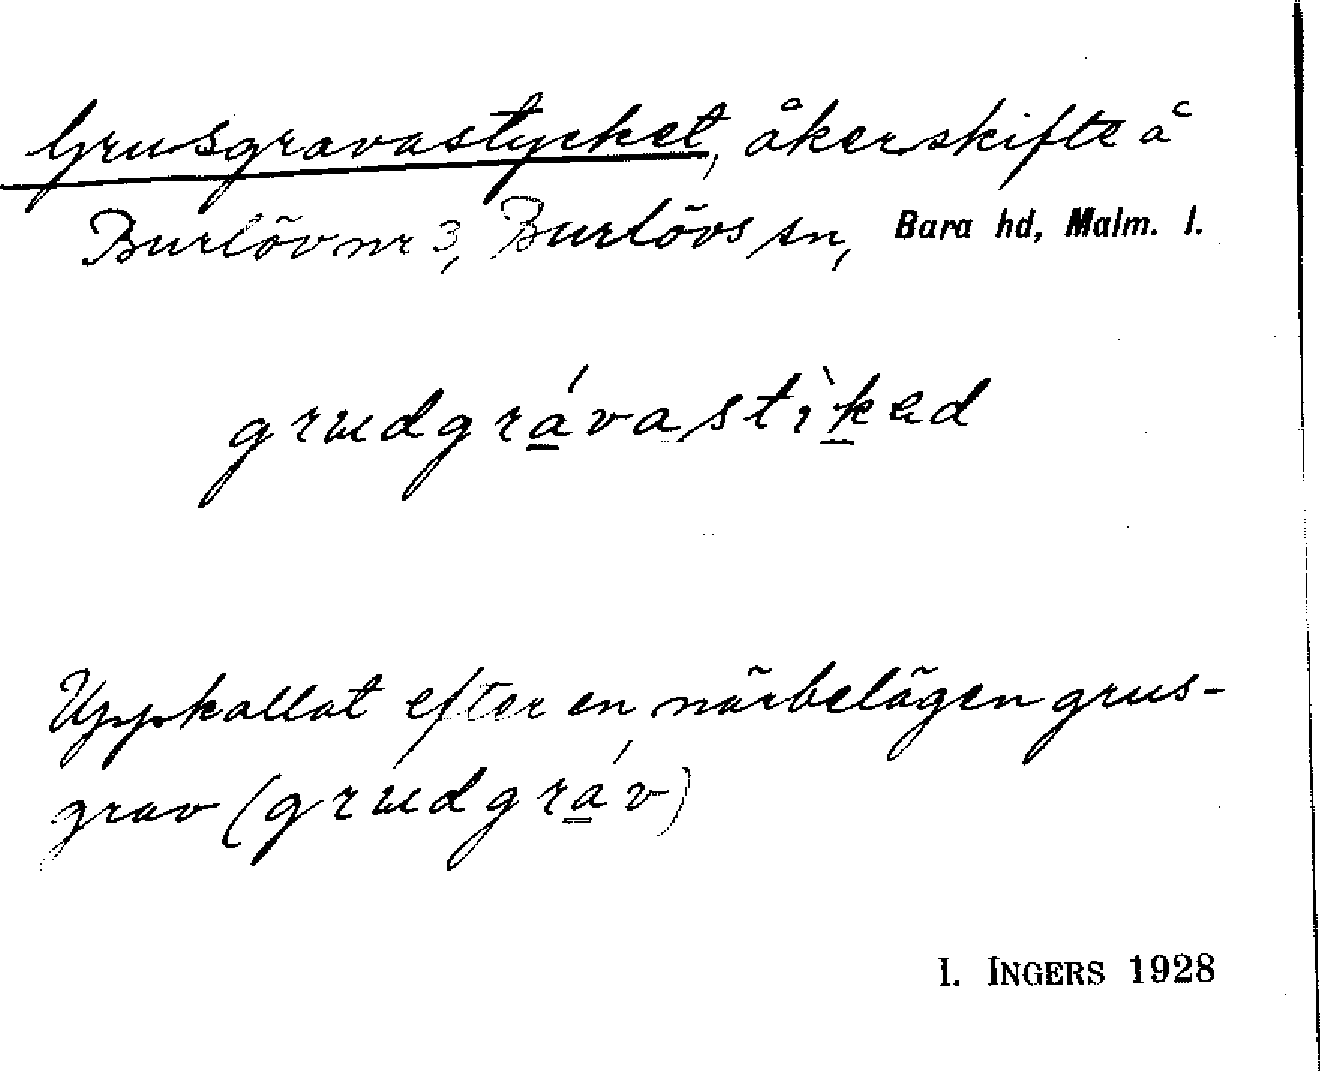 Grusgravastycket, åkerskifte å
Burlöv nr 3, Burlövs sn, Bara hd, Malm. l.
grudgrávastìked
Uppkallat efter en närbelägen grus-
grav (grudgráv)
I. INGERS 1928